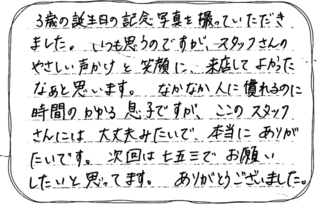 3歳の誕生日の記念写真を撮っていただき
ました。いつも思うのですが、スタッフさんの
やさしい声かけと笑顔に、来店してよかった
なあと思います。なかなか人に慣れるのに
時間のかかる息子ですが、ここのスタッフ
さんには大丈夫みたいで、本当にありが
たいです。次回は七五三でお願い
したいと思ってます。ありがとうございました。